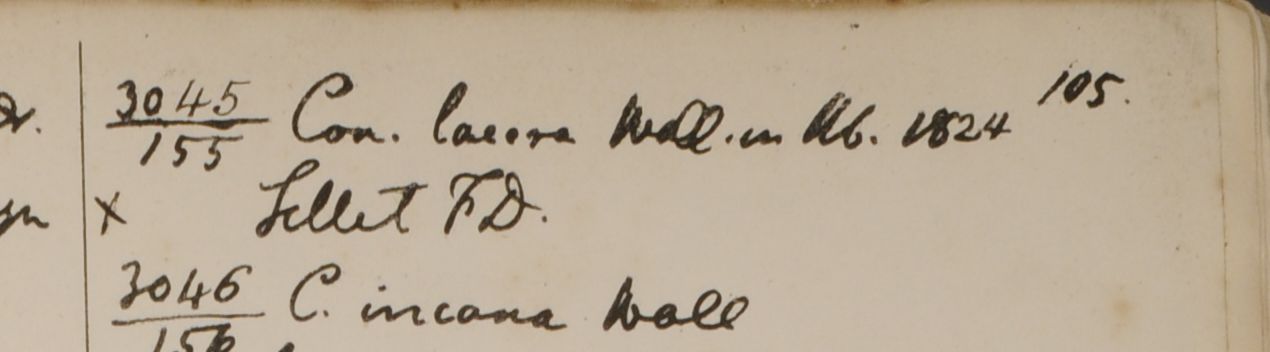 105.
3045 Con. lacera Wall. in Hb. 1824
155
x Sillet F.D.
3046 C. incana Wall
156